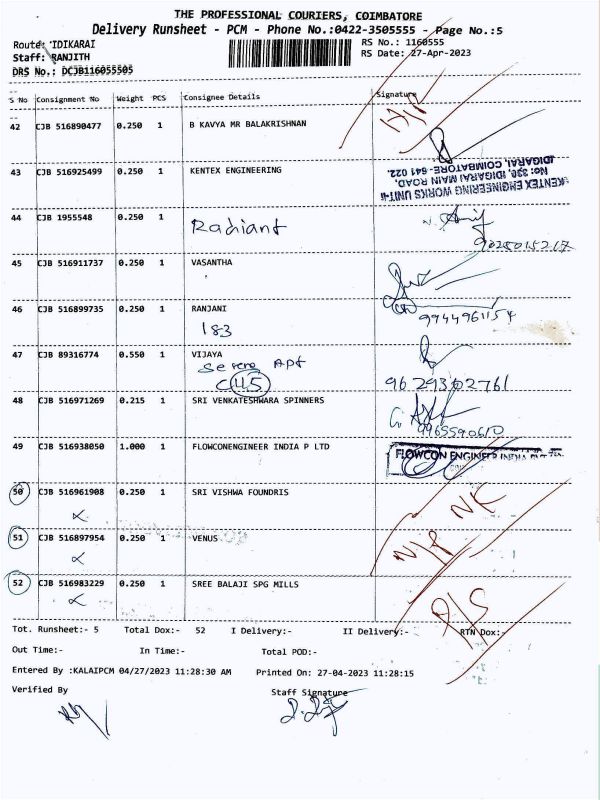 THE PROFESSIONAL COURIERS, COIMBATORE
Delivery Runsheet - PCM - Phone No.:0422-3505555 - Page No.:5
Route: IDIKARAI RS No.: 1160555
Staff: RANJITH RS Date: 27-Apr-2023
DRS No.: DCJB116055505
S No Consignment No Weight PCS Consignee Details Signature
42 CJB 516890477 0.250 1 B KAVYA MR BALAKRISHNAN
43 CJB 516925499 0.250 1 KENTEX ENGINEERING
KENTEX ENGINEERING WORKS UNIT-II
No: 336, IDIGARAI MAIN ROAD,
IDIGARAI, COIMBATORE- 641 022.
44 CJB 1955548 0.250 1
Radiant
9025015217
45 CJB 516911737 0.250 1 VASANTHA
46 CJB 516899735 0.250 1 RANJANI
183 9944961154
47 CJB 89316774 0.550 1 VIJAYA
Serene Apt
C 45 9629302761
48 CJB 516971269 0.215 1 SRI VENKATESHWARA SPINNERS
9965590610
49 CJB 516938050 1.000 1 FLOWCONENGINEER INDIA P LTD
FLOWCON ENGINEER INDIA PVT LTD.
50 CJB 516961908 0.250 1 SRI VISHWA FOUNDRIS
NK
51 CJB 516897954 0.250 1 VENUS
N/P
52 CJB 516983229 0.250 1 SREE BALAJI SPG MILLS
Tot. Runsheet:- 5 Total Dox:- 52 I Delivery:- II Delivery:- RTN Dox:-
Out Time:- In Time:- Total POD:-
Entered By :KALAIPCM 04/27/2023 11:28:30 AM Printed On: 27-04-2023 11:28:15
Verified By Staff Signature